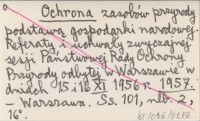 Ochrona zasobów przyrody
podstawą gospodarki narodowej.
Referaty i uchwały zwyczajnej
sesji Państwowej Rady Ochrony
Przyrody odbytej w Warszawie w
dniach 15 i 16 XI 1956 r. 1957.
- Warszawa. Ss. 101, nlb. 2,
16°.